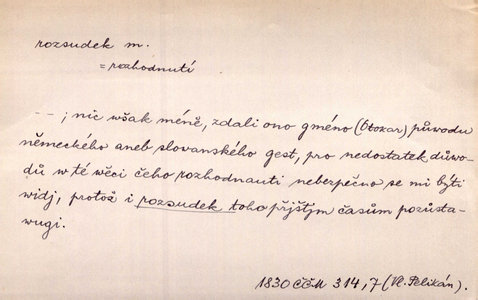 rozsudek m.
= rozhodnutí
- - ; nic wšak méně, zdali ono gméno (Otozar) půwodu
německého aneb slovanského gest, pro nedostatek důwo-
dů w té věci čeho rozhodnauti nebezpečno se mi býti
widj, protož i rozsudek toho přjštjm časům pozůsta-
wugi.
1830 ČČM 314,7 (Vl. Pelikán).